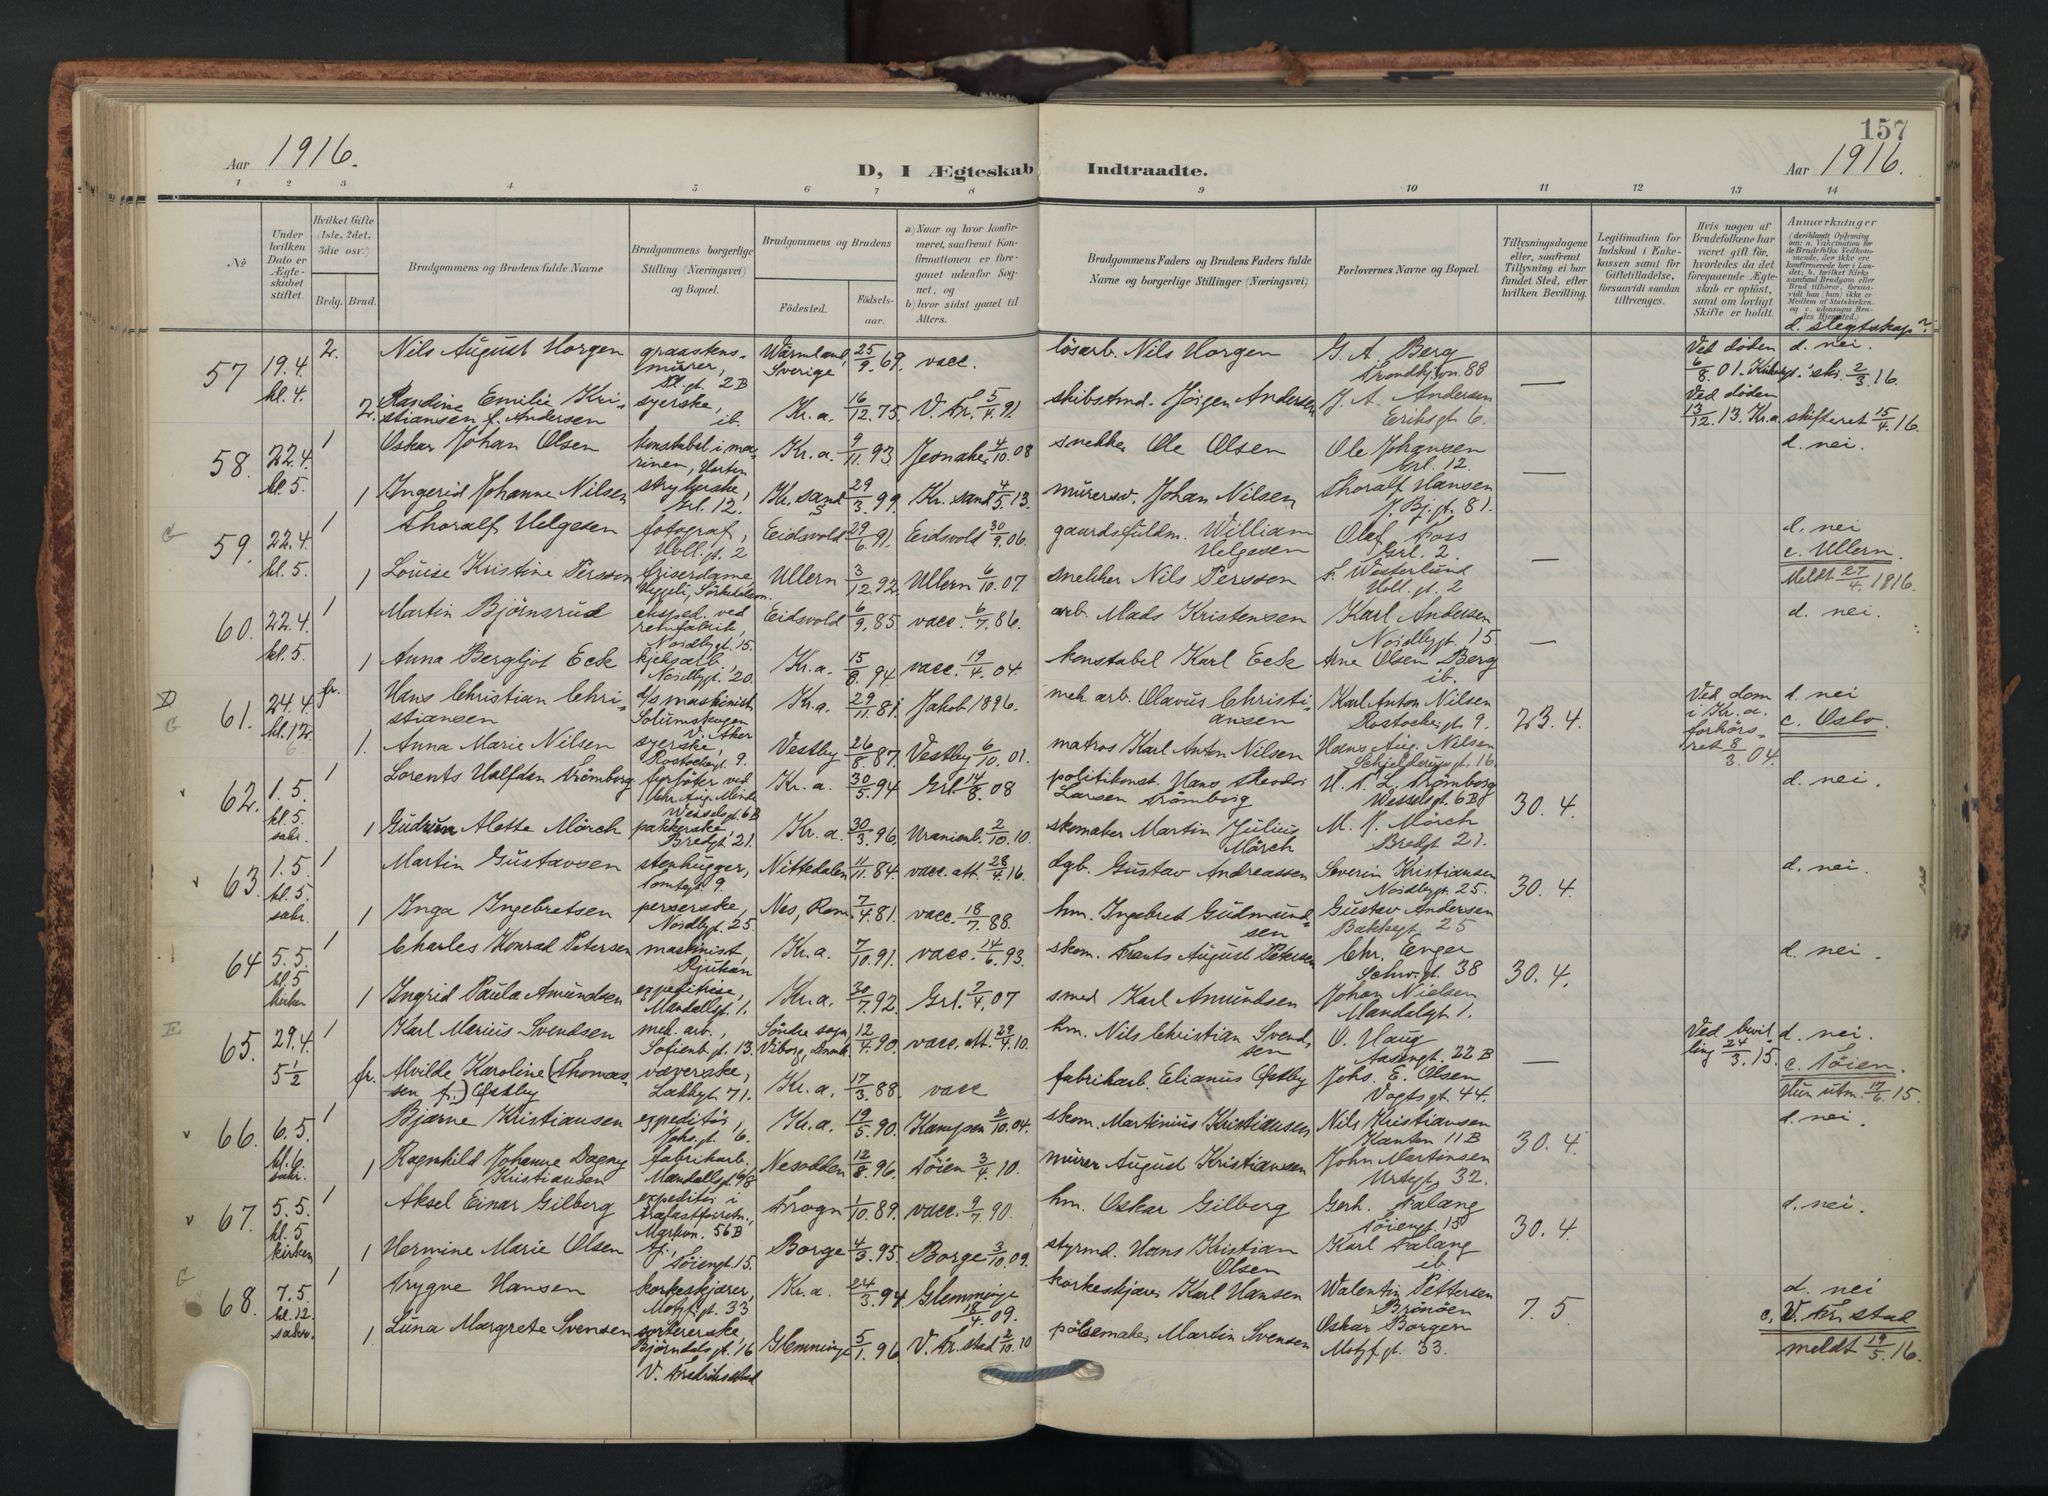 157
Aar 1916.
D, I Ægteskab Indtraadte.
Aar 1916.
1 2 3 4 5 6 7 8 9 10 11 12 13 14
№
Under hvilken Dato er Ægteskabet stiftet.
Hvilket Gifte (1ste, 2det, 3die osv.)
Brdg. Brud.
Brudgommens og Brudens fulde Navne
Brudgommens borgerlige Stilling (Næringsvei) og Bopæl.
Brudgommens og Brudens
Fødested.
Fødselsaar.
a) Naar og hvor konfirmeret, saafremt Konfirmationen er foregaaet udenfor Sognet, og
b) hvor sidst gaaet til Alters.
Brudgommens Faders og Brudens Faders fulde Navne og borgerlige Stillinger (Næringsvei)
Forlovernes Navne og Bopæl.
Tillysningsdagene eller, saafremt Tillysning ei har fundet Sted, efter hvilken Bevilling.
Legitimation for Indskud i Enkekassen samt for Giftetilladelse, forsaavidt saadan tiltrænges.
Hvis nogen af Brudefolkene har været gift før, hvorledes da det foregaaende Ægteskab er opløst, samt om lovligt Skifte er holdt.
Anmærkninger
d. slegtskap?
57 19.4. kl. 4. 2. Nils August Horgen graastensmurer, Pl. gt. 2B Wärmland, Sverige 25/9. 69. vacc. løsarb. Nils Horgen G. A. Berg Trondhjvn. 88 — Ved døden 6/8 01. ski. 2/3. 16. d. nei.
2. Randine Emilie Kristiansen f. Andersen syerske, ib. Kr.a. 16/12. 75. V. Fr. 5/4. 91. skibstmd. Jörgen Andersen J. A. Andersen Eriksgt. 6. Ved døden 13/12. 13. Kr.a. skifteret 15/4. 16.
58. 22.4. kl. 5. 1 Oskar Johan Olsen konstabel i marinen, Horten Kr.a. 9/11. 93. Jevnaker 4/10. 08 snekker Ole Olsen Ole Johansen Grl. 12. — d. nei.
1 Ingerid Johanne Nilsen strykerske, Grl. 12. Kr. sand S 29/3. 99. Kr. sand 4/5. 13. murersv. Johan Nilsen Thoralf Hansen J. Bj. gt. 81.
G 59. 22.4. kl. 5. 1 Thoralf Helgesen fotograf, Holl. gt. 2 Eidsvold 29/6. 91. Eidsvold 30/9. 06. gaardsfuldm. William Helgesen Olaf Foss Grl. 2. — d. nei
1 Louise Kristine Perssen friserdame, Sörkedalsvn. Ullern 3/12. 92. Ullern 6/10. 07. snekker Nils Perssen F. Westerlund Holl. gt. 2 c. Ullern. Meldt 27/4. 1916.
60. 22.4. kl. 5. 1 Martin Björnsrud eksped. ved remfabrik Nordbygt. 15. Eidsvold 6/9. 85 vacc. 6/7. 86. arb. Mads Kristensen Karl Andersen Nordbygt. 15 — d. nei.
1 Anna Bergljot Eck kjeksarb. Nordbygt. 20. Kr.a. 15/8. 94 vacc. 19/4. 04. konstabel Karl Eck Arne Olsen Berg ib.
D G 61. 24.4. kl. 12. fr. Hans Christian Christiansen d/s maskinist, Solumskogen V. Aker Kr.a. 29/11. 81 Jakob 1896. mek. arb. Olavus Christiansen Karl Anton Nilsen Rostockergt. 9. 23. 4. Ved dom i Kr.a. forhørsret 8/3. 04. d. nei
1. Anna Marie Nilsen syerske, Rostockgt. 9. Vestby 26/8. 87. Vestby 6/10. 01. matros Karl Anton Nilsen Hans Aug. Nilsen Schjelderupsgt. 16. c. Oslo.
v 62. 1. 5. kl. 5. sakr. 1 Lorents Halfdan Strömberg fyrböter ved Chr. Aug. Minde Wesselsgt. 6B Kr.a. 30/5. 94 Grl. 14/8. 08 politikonst. Hans Theodor Larsen Strömberg H. T. L. Strömberg Wesselsgt. 6B 30. 4. d. nei.
1 Gudrun Alette Mörch pakkerske, Bredgt. 21. Kr.a. 30/3. 96. Uranienb. 2/10. 10. skomaker Martin Julius Mörch M. J. Mörch Bredgt 21.
v 63. 1.5. kl. 5 sakr. 1 Martin Gustavsen stenhugger, Tomtegt. 9. Nittedalen 11/11. 84. vacc. att. 28/4. 16. dgb. Gustav Andreassen Severin Kristiansen Nordbygt. 25. 30. 4. d. nei.
1 Inga Ingebretsen perserske, Nordbygt. 25. Nes, Rom. 7/4. 81. vacc. 18/7. 88. hm. Ingebret Gudmundsen Gustav Andersen Bakkegt. 25
64 5.5. kl. 5 kirken 1 Charles Konrad Petersen maskinist, Rjukan Kr.a. 7/10. 91. vacc. 14/6. 93. skom. Frants August Petersen Chr. Enger Schw. gt. 38 30. 4. d. nei.
1 Ingrid Paula Amundsen expeditrise, Mandallsgt. 1. Kr.a. 30/7. 92. Grl. 2/4. 07 smed Karl Amundsen Johan Nielsen Mandalsgt 1.
E 65. 29.4. 5 1/2 1 Karl Marius Svendsen mek. arb., Sofienb. gt. 13. Söndre sogn Viborg, Danmk. 12/4. 90. vacc. att. 29/4. 10. hm. Nils Christian Svendsen O. Haug Aasengt. 22 B — Ved bevilling 24/3. 15. d. nei
fr. Alvilde Karoline (Thomassen f.) Østby væverske, Lakkegt 71. Kr.a. 17/3. 88. vacc fabrikarb. Elianus Østby Johs. E. Olsen Vogtsgt. 44. c. Töien. Hun utm. 17/6. 15.
v 66. 6.5. kl. 6. sakr. 1 Bjarne Kristiansen expeditör, Johs. gt. 6. Kr.a. 19/5. 90. Kampen 2/10. 04. skom. Martinius Kristiansen Nils Kristiansen Kanten 11 B 30. 4. d. nei.
1 Ragnhild Johanne Dagny Kristiansen fabrikarb. Mandallsgt. Nesodden 12/8. 96. Töien 3/4. 10. murer August Kristiansen John Martinsen Urtegt. 32.
v 67. 5.5. kl. 5 kirken 1 Aksel Einar Gilberg expeditör i trælastforretn., Markvn. 56 B Frogn 1/10. 89. vacc. 9/7. 90. hm. Oskar Gilberg Gerh. Falang Töiengt. 15 30. 4. d. nei.
1 Hermine Marie Olsen tj., Töiengt. 15. Borge 4/3. 95. Borge 3/10. 09. styrmd. Hans Kristian Olsen Karl Falang ib.
G 68. 7.5. kl. 12. sakr. 1 Trygve Hansen korkeskjærer, Motzf. gt. 33 Kr.a. 24/3. 94 Glemminge 18/4. 09. korkeskjærer Karl Hansen Walentin Pettersen Brönöen 7. 5 d. nei
1. Luna Margrete Svensen sorterske, Björndalsgt. 16 V. Fredrikstad Glemminge 5/1. 96. V. Fr. stad 2/10. 10 pölsemaker Martin Svensen Oskar Borgen Motzf. gt. 33. c. V. Fr.stad meldt 19/5. 16.